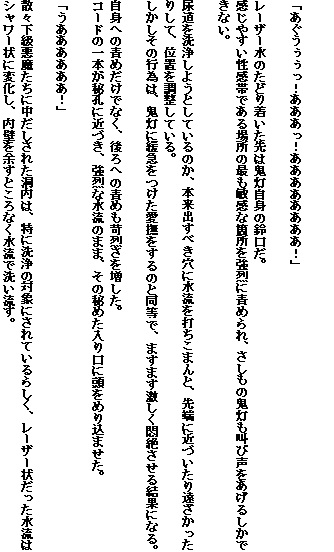 「あぐぅぅぅっ！あああっ！ああああああああ！」
レーザー水のたどり着いた先は鬼灯自身の鈴口だ。
感じやすい性感帯である場所の最も敏感な箇所を強烈に責められ、さしもの鬼灯も叫び声をあげるしかで
きない。
尿道を洗浄しようとしているのか、本来出すべき穴に水流を打ちこまんと、先端に近づいたり遠ざかった
りして、位置を調整している。
しかしその行為は、鬼灯に緩急をつけた愛撫をするのと同等で、ますます激しく悶絶させる結果になる。
自身への責めだけでなく、後ろへの責めも苛烈さを増した。
コードの一本が秘孔に近づき、強烈な水流のまま、その秘めた入り口に頭をめり込ませた。
「うああああああ！」
散々下級悪魔たちに中だしされた洞内は、特に洗浄の対象にされているらしく、レーザー状だった水流は
シャワー状に変化し、内壁を余すところなく水流で洗い流す。